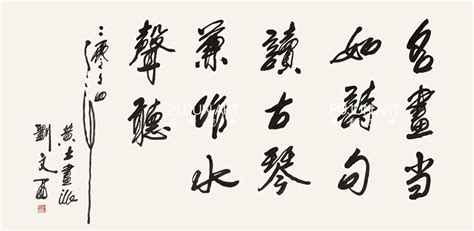 名畫当
如詩句
讀古琴
兼作水
聲聽
黄土畫派
劉文西